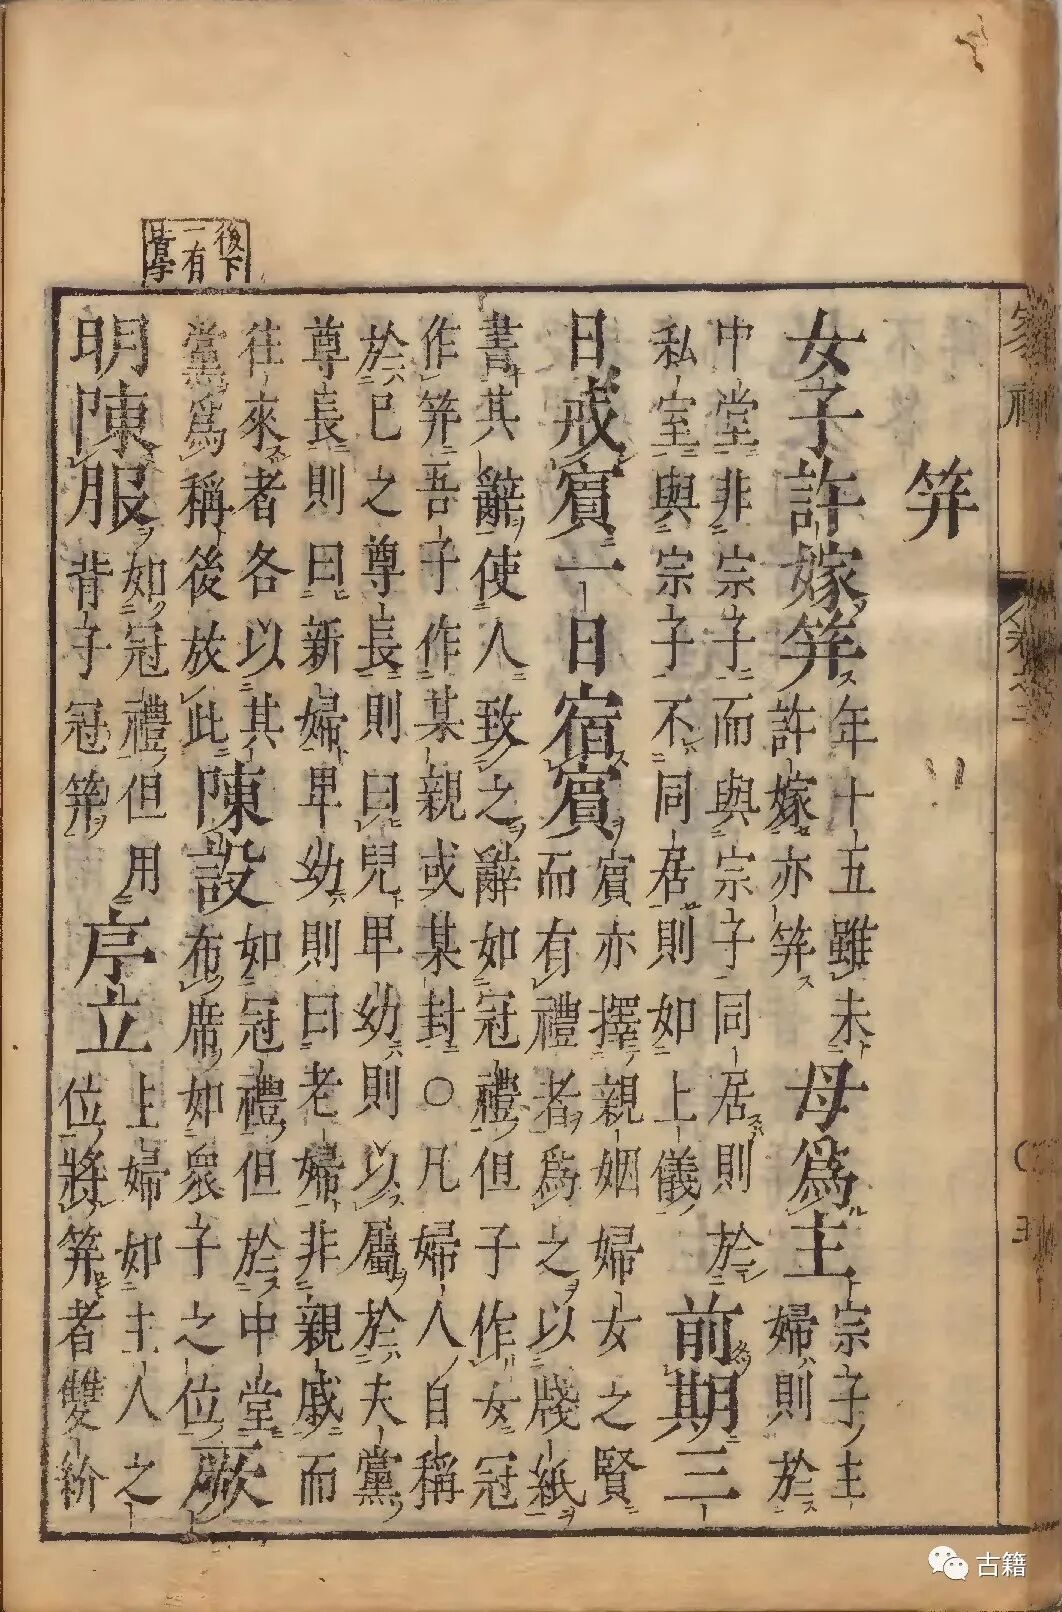 家禮
笄
女子許嫁笄年十五雖未
許嫁亦笄母爲主宗子主
婦則於
中堂非宗子而與宗子同居則於
私室與宗子不同居則如上儀前期三
日戒賓一日宿賓賓亦擇親姻婦女之賢
而有禮者爲之以牋紙
書其辭使人致之辭如冠禮但子作女冠
作笄吾子作某親或某封○凡婦人自稱
於己之尊長則曰兒卑幼則以屬於夫黨
尊長則曰新婦卑幼則曰老婦非親戚而
往來者各以其
黨爲稱後放此陳設如冠禮但於中堂
布席如衆子之位厥
明陳服如冠禮但用
背子冠笄序立主婦如主人之
位將笄者雙紒
後下
一有
皆字
古籍